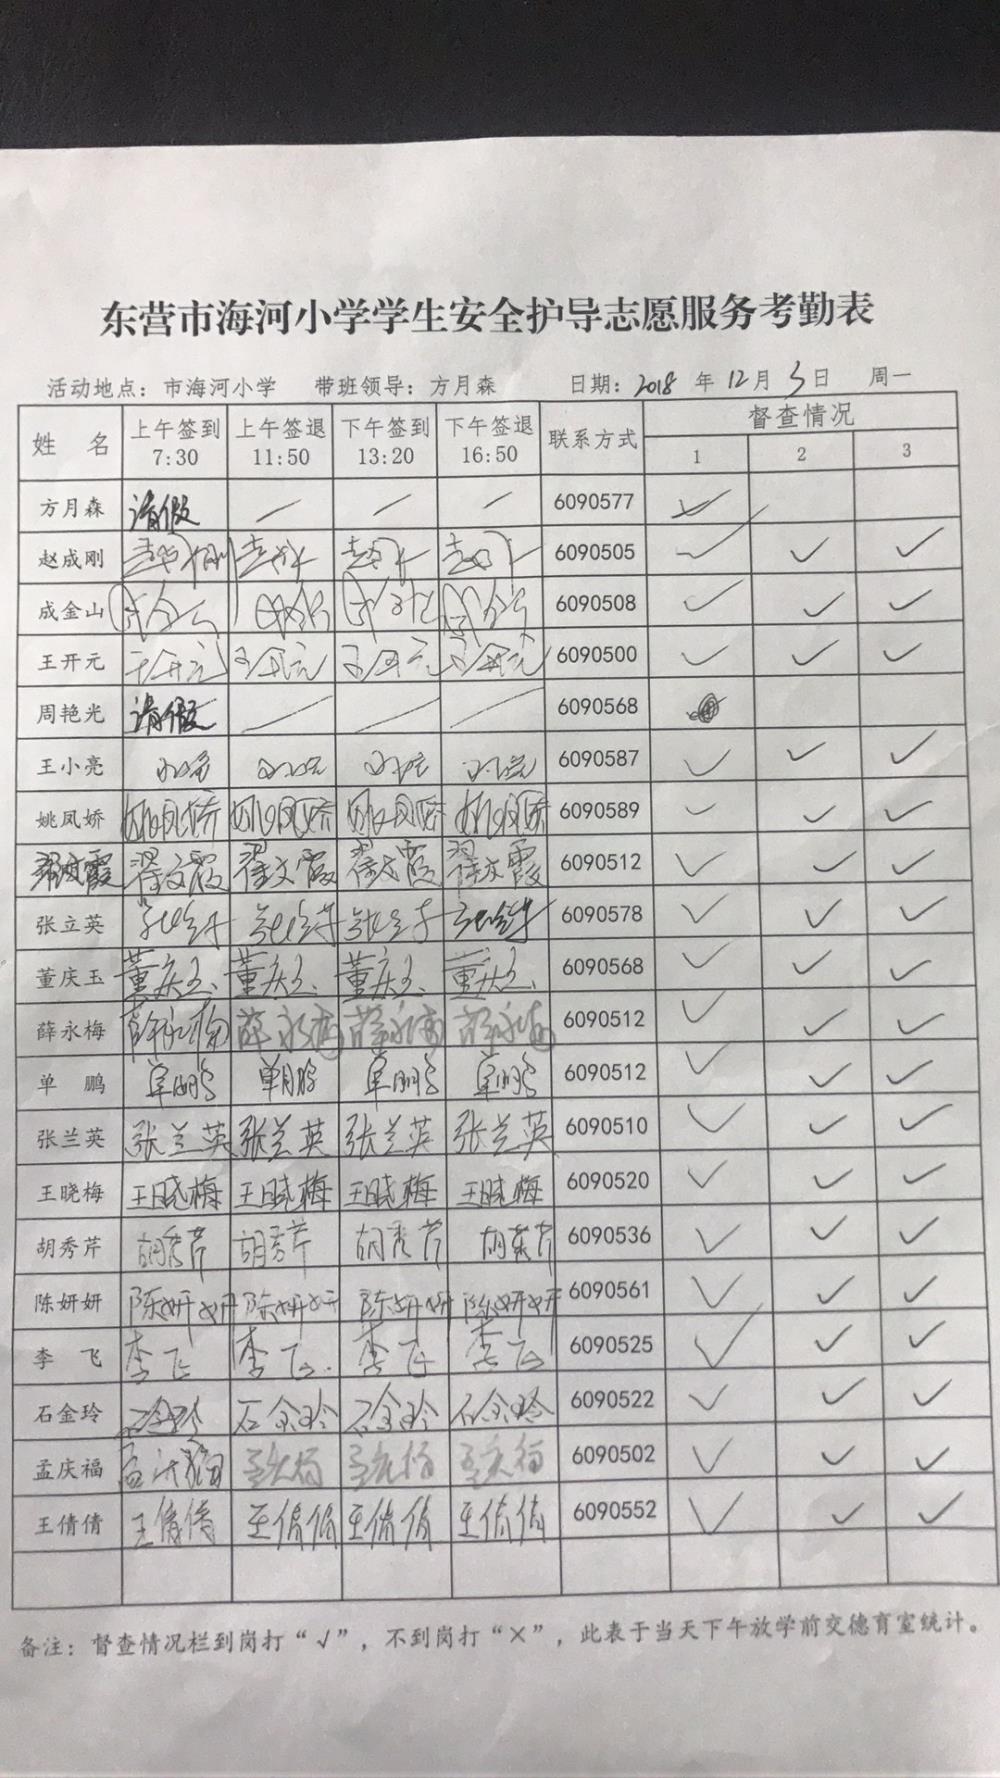 东营市海河小学学生安全护导志愿服务考勤表
活动地点：市海河小学 带班领导：方月森 日期：2018 年 12 月 3 日 周一
姓 名 上午签到 7:30 上午签退 11:50 下午签到 13:20 下午签退 16:50 联系方式 督查情况
1 2 3
方月森 请假 6090577 ✓
赵成刚 赵成刚 6090505 ✓ ✓ ✓
成金山 成金山 6090508 ✓ ✓ ✓
王开元 王开元 王开元 王开元 王开元 6090500 ✓ ✓ ✓
周艳光 请假 6090568
王小亮 6090587 ✓ ✓ ✓
姚凤娇 姚凤娇 姚凤娇 姚凤娇 姚凤娇 6090589 ✓ ✓ ✓
翟文霞 翟文霞 翟文霞 翟文霞 翟文霞 6090512 ✓ ✓ ✓
张立英 6090578 ✓ ✓ ✓
董庆玉 董庆玉 董庆玉 董庆玉 董庆玉 6090568 ✓ ✓ ✓
薛永梅 薛永梅 薛永梅 薛永梅 薛永梅 6090512 ✓ ✓ ✓
单 鹏 单鹏 单鹏 单鹏 单鹏 6090512 ✓ ✓ ✓
张兰英 张兰英 张兰英 张兰英 张兰英 6090510 ✓ ✓ ✓
王晓梅 王晓梅 王晓梅 王晓梅 王晓梅 6090520 ✓ ✓ ✓
胡秀芹 胡秀芹 胡秀芹 胡秀芹 胡秀芹 6090536 ✓ ✓ ✓
陈妍妍 陈妍妍 陈妍妍 陈妍妍 陈妍妍 6090561 ✓ ✓ ✓
李 飞 李飞 李飞 李飞 李飞 6090525 ✓ ✓ ✓
石金玲 石金玲 石金玲 石金玲 石金玲 6090522 ✓ ✓ ✓
孟庆福 孟庆福 孟庆福 孟庆福 孟庆福 6090502 ✓ ✓ ✓
王倩倩 王倩倩 王倩倩 王倩倩 王倩倩 6090552 ✓ ✓ ✓
备注：督查情况栏到岗打“√”，不到岗打“×”，此表于当天下午放学前交德育室统计。